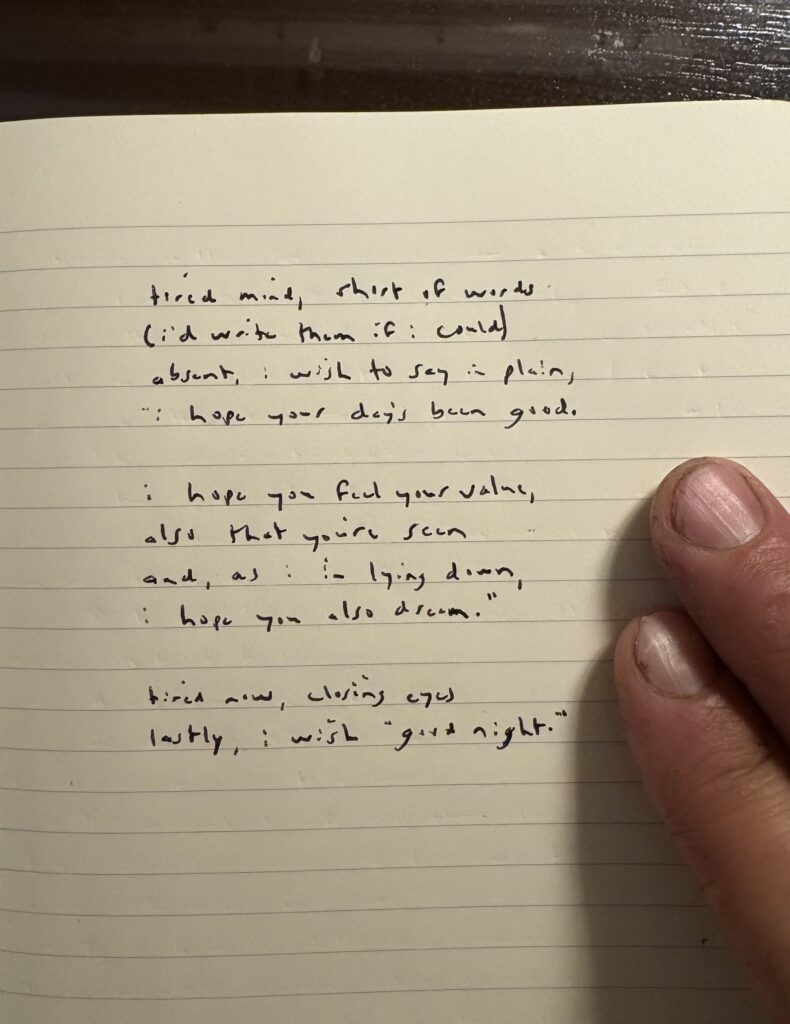 tired mind, short of words
(i'd write them if i could)
absent, i wish to say in plain,
"i hope your day's been good.
i hope you feel your value,
also that you're seen
and, as i'm lying down,
i hope you also dream."
tired now, closing eyes
lastly, i wish "good night."